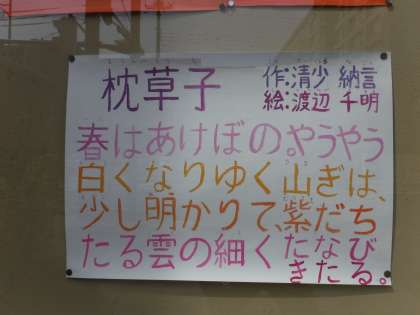 枕草子
作:清少納言
絵:渡辺 千明
春はあけぼの。やうやう
白くなりゆく山ぎは、
少し明かりて、紫だち
たる雲の細くたなび
きたる。